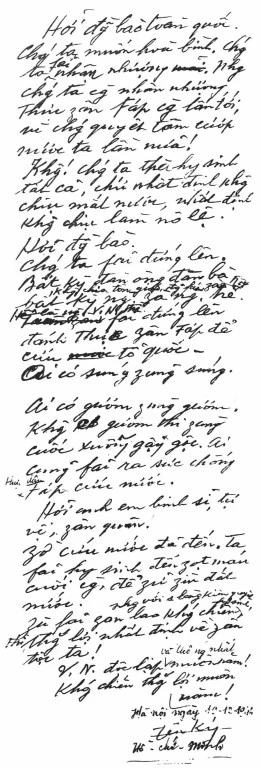 Hỡi đg bào toàn quốc.
Chg ta muốn hoà bình, chg
ta fải nhân nhượng. Nhg
chg ta cg nhân nhượng
thực zân Fáp cg lấn tới,
vì chg quyết tâm cướp
nước ta lần nữa!
Khg! Chg ta thà hy sinh
tất cả, chứ nhất định khg
chịu mất nước, nhất định
khg chịu làm nô lệ.
Hỡi đg bào.
Chg ta fải đứng lên.
Bất kỳ đàn ông đàn bà,
bất kỳ ng già ng trẻ,
fải đứng lên
đánh thực zân Fáp để
cứu tổ quốc –
Ai có súng zùng súng.
Ai có gươm zùng gươm.
Khg có gươm thì zùng
cuốc xuổng gậy gộc. Ai
cũng fải ra sức chống
Fáp cứu nước.
Hỡi anh em binh sĩ, tự
vệ, zân quân.
Zờ cứu nước đã đến. Ta
fải hy sinh đến zọt máu
cuối cg, để zữ zìn đất
nước.
Zù fải zan lao khg chiến,
thắg lợi nhất định về zân
tộc ta!
V.N. độc lập và thống nhất muôn năm!
Khg chiến thắg lợi muôn
năm!
Hà nội ngày
Hồ-chí-Minh